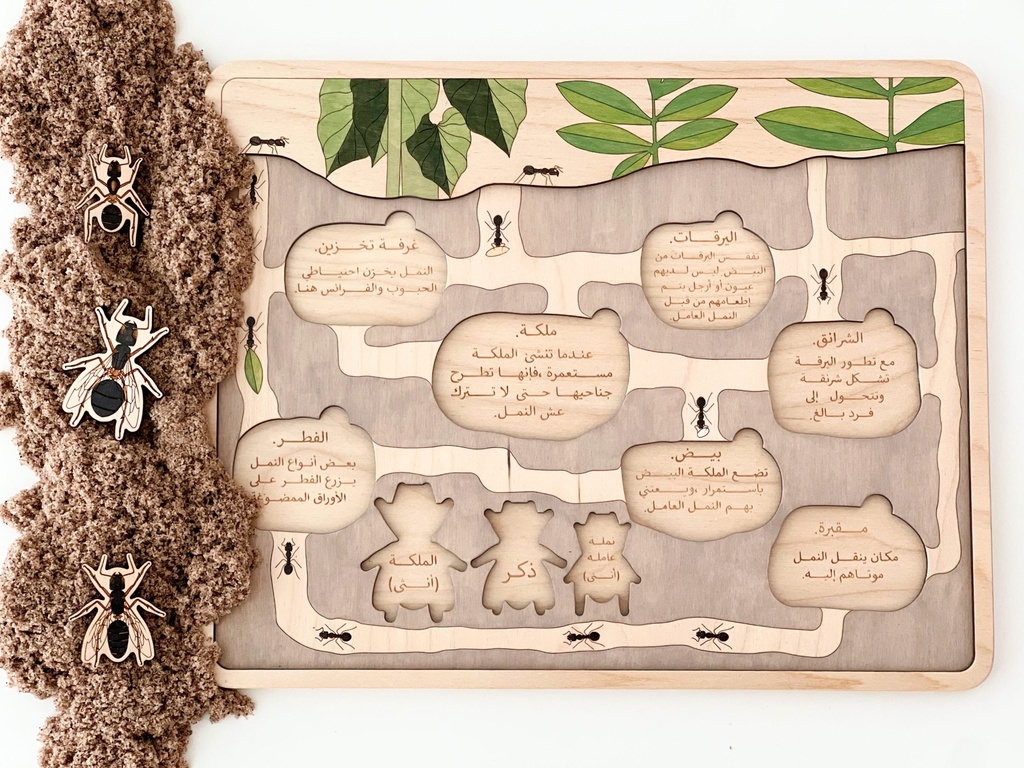 غرفة تخزين.
النمل يخزن احتياطي
الحبوب والفرائس هنا.
اليرقات.
تفقس اليرقات من
البيض ليس لديهم
عيون أو أرجل يتم
إطعامهم من قبل
النمل العامل.
ملكة.
عندما تنشئ الملكة
مستعمرة ،فإنها تطرح
جناحيها حتى لا تترك
عش النمل.
الشرانق.
مع تطور اليرقة
تشكل شرنقة
وتتحول إلى
فرد بالغ.
الفطر.
بعض أنواع النمل
يزرع الفطر على
الأوراق الممضوغة
بيض.
تضع الملكة البيض
باستمرار ،ويعتني
بهم النمل العامل.
مقبرة.
مكان ينقل النمل
موتاهم إليه.
الملكة
(أنثى)
ذكر
نملة
عاملة
(أنثى)